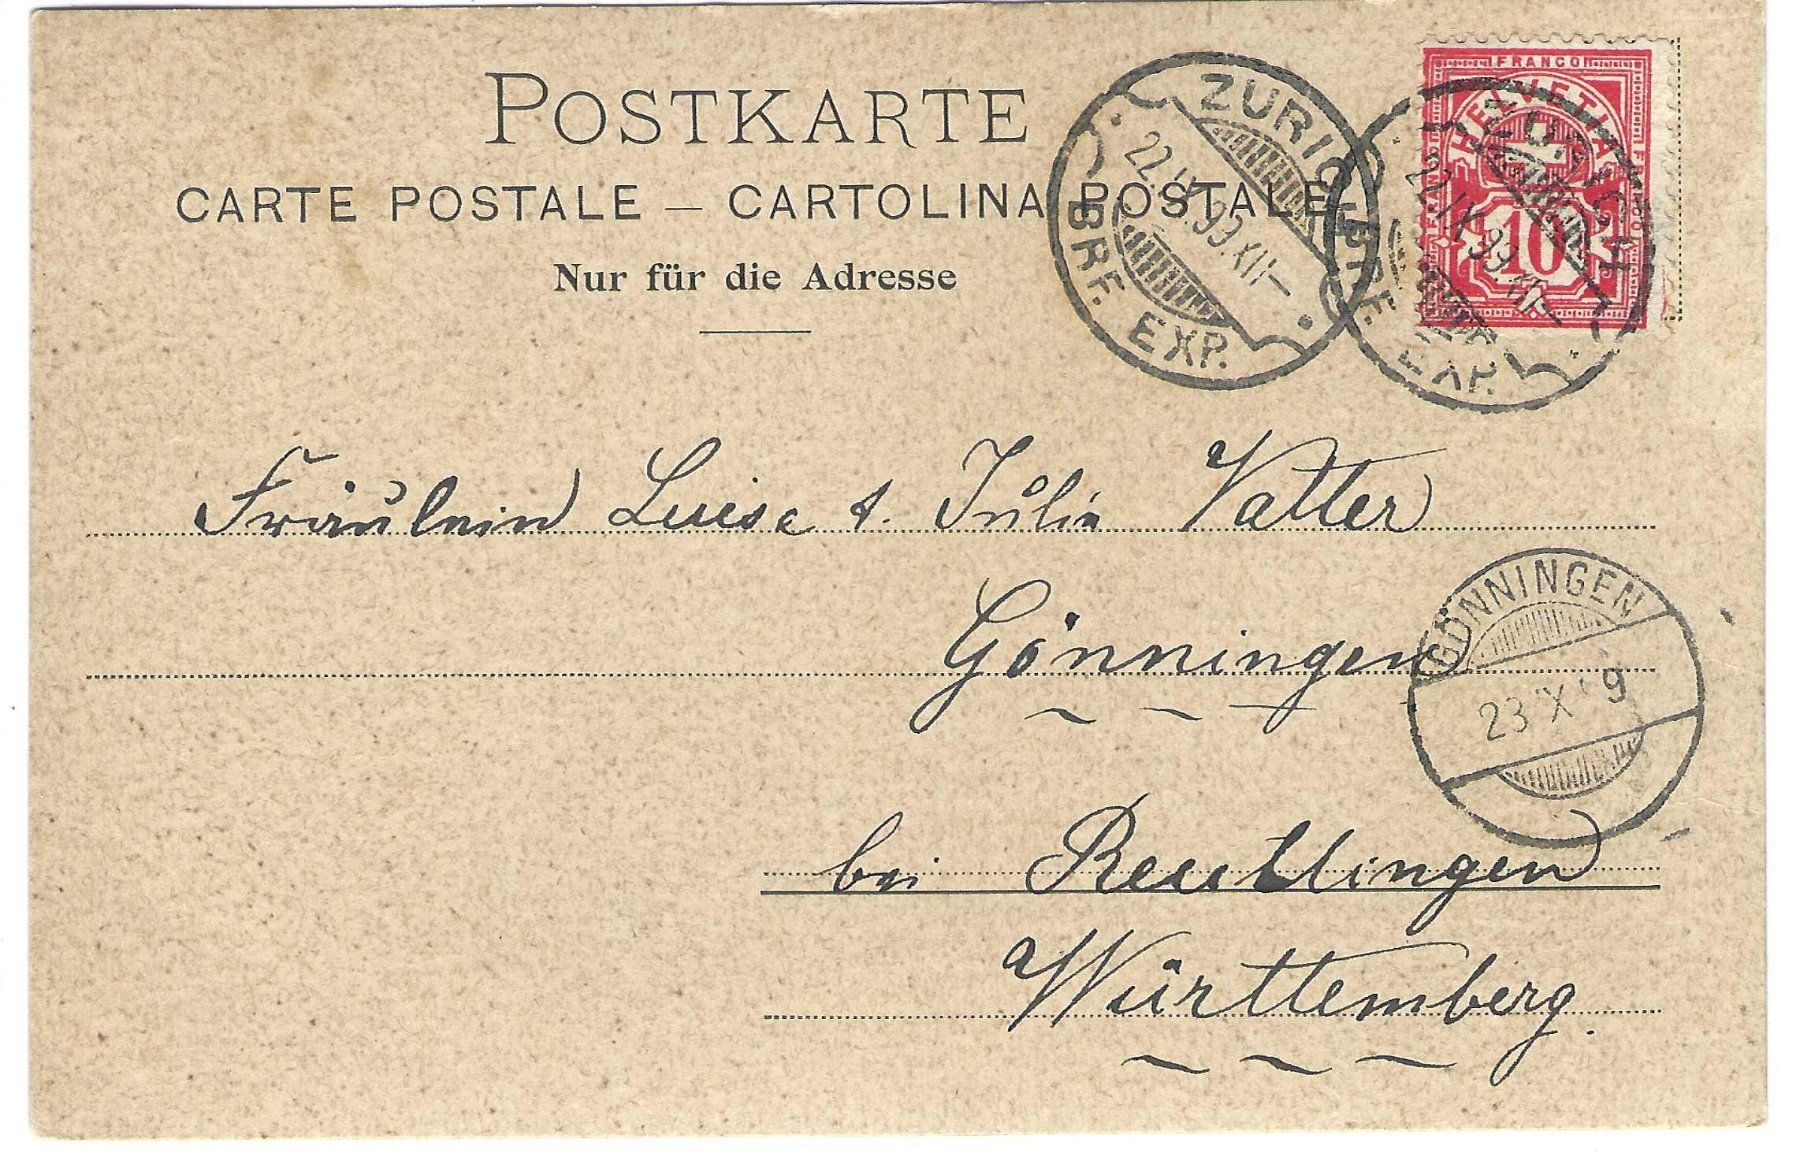 POSTKARTE
CARTE POSTALE — CARTOLINA POSTALE
Nur für die Adresse
ZÜRICH
22.IX.99.XII—
BRF. EXP.
ZÜRICH
22.IX.99.XII—
BRF. EXP.
FRANCO
HELVETIA
10
Fräulein Luise & Julie Vatter
Gönningen
GÖNNINGEN
23 9
bei Reutlingen
Württemberg.